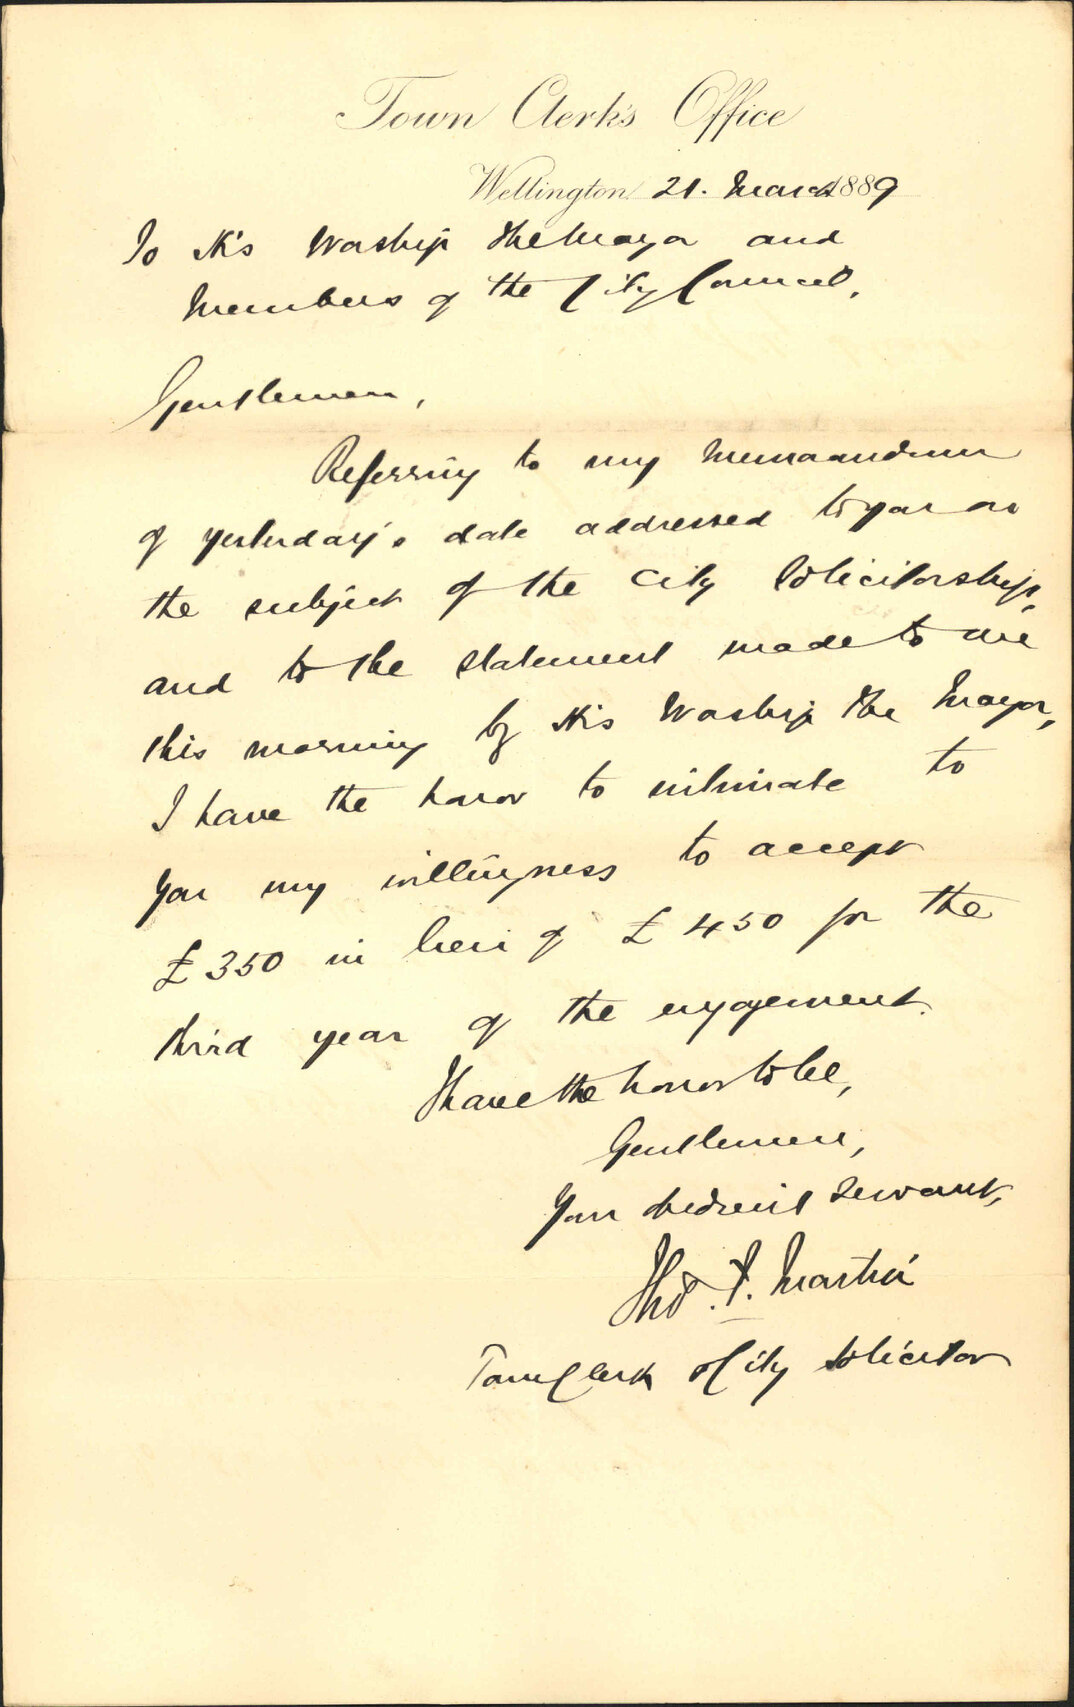 Town Clerk's Office
Wellington 21. March 1889
To His Worship the Mayor and
Members of the City Council,
Gentlemen,
Referring to my memorandum
of yesterday's date addressed to you on
the subject of the City Solicitorship,
and to the statement made to me
this morning by His Worship the Mayor,
I have the honor to intimate to
you my willingness to accept
£350 in lieu of £450 for the
third year of the engagement.
I have the honor to be,
Gentlemen,
Your obedient servant,
Tho. F. Martin
Town Clerk & City Solicitor